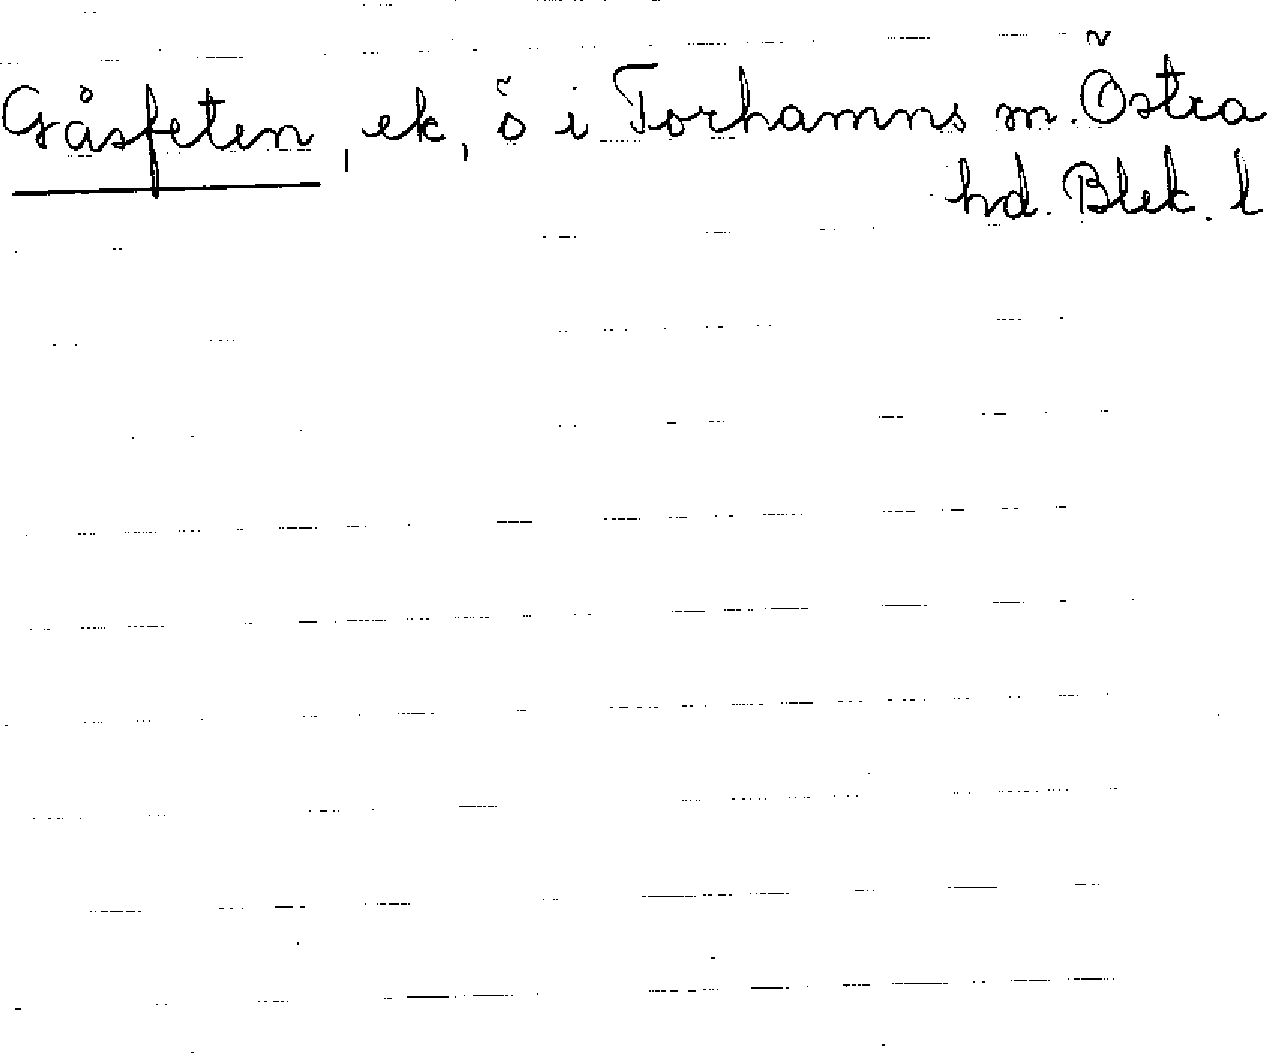 Gåsfeten, ek, ö i Torhamns sn. Östra
hd. Blek. l